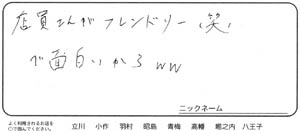 店員さんがフレンドリー(笑)
で面白いから ww
ニックネーム
よく利用されるお店を
○で囲んでください。 立川 小作 羽村 昭島 青梅 高幡 堀之内 八王子